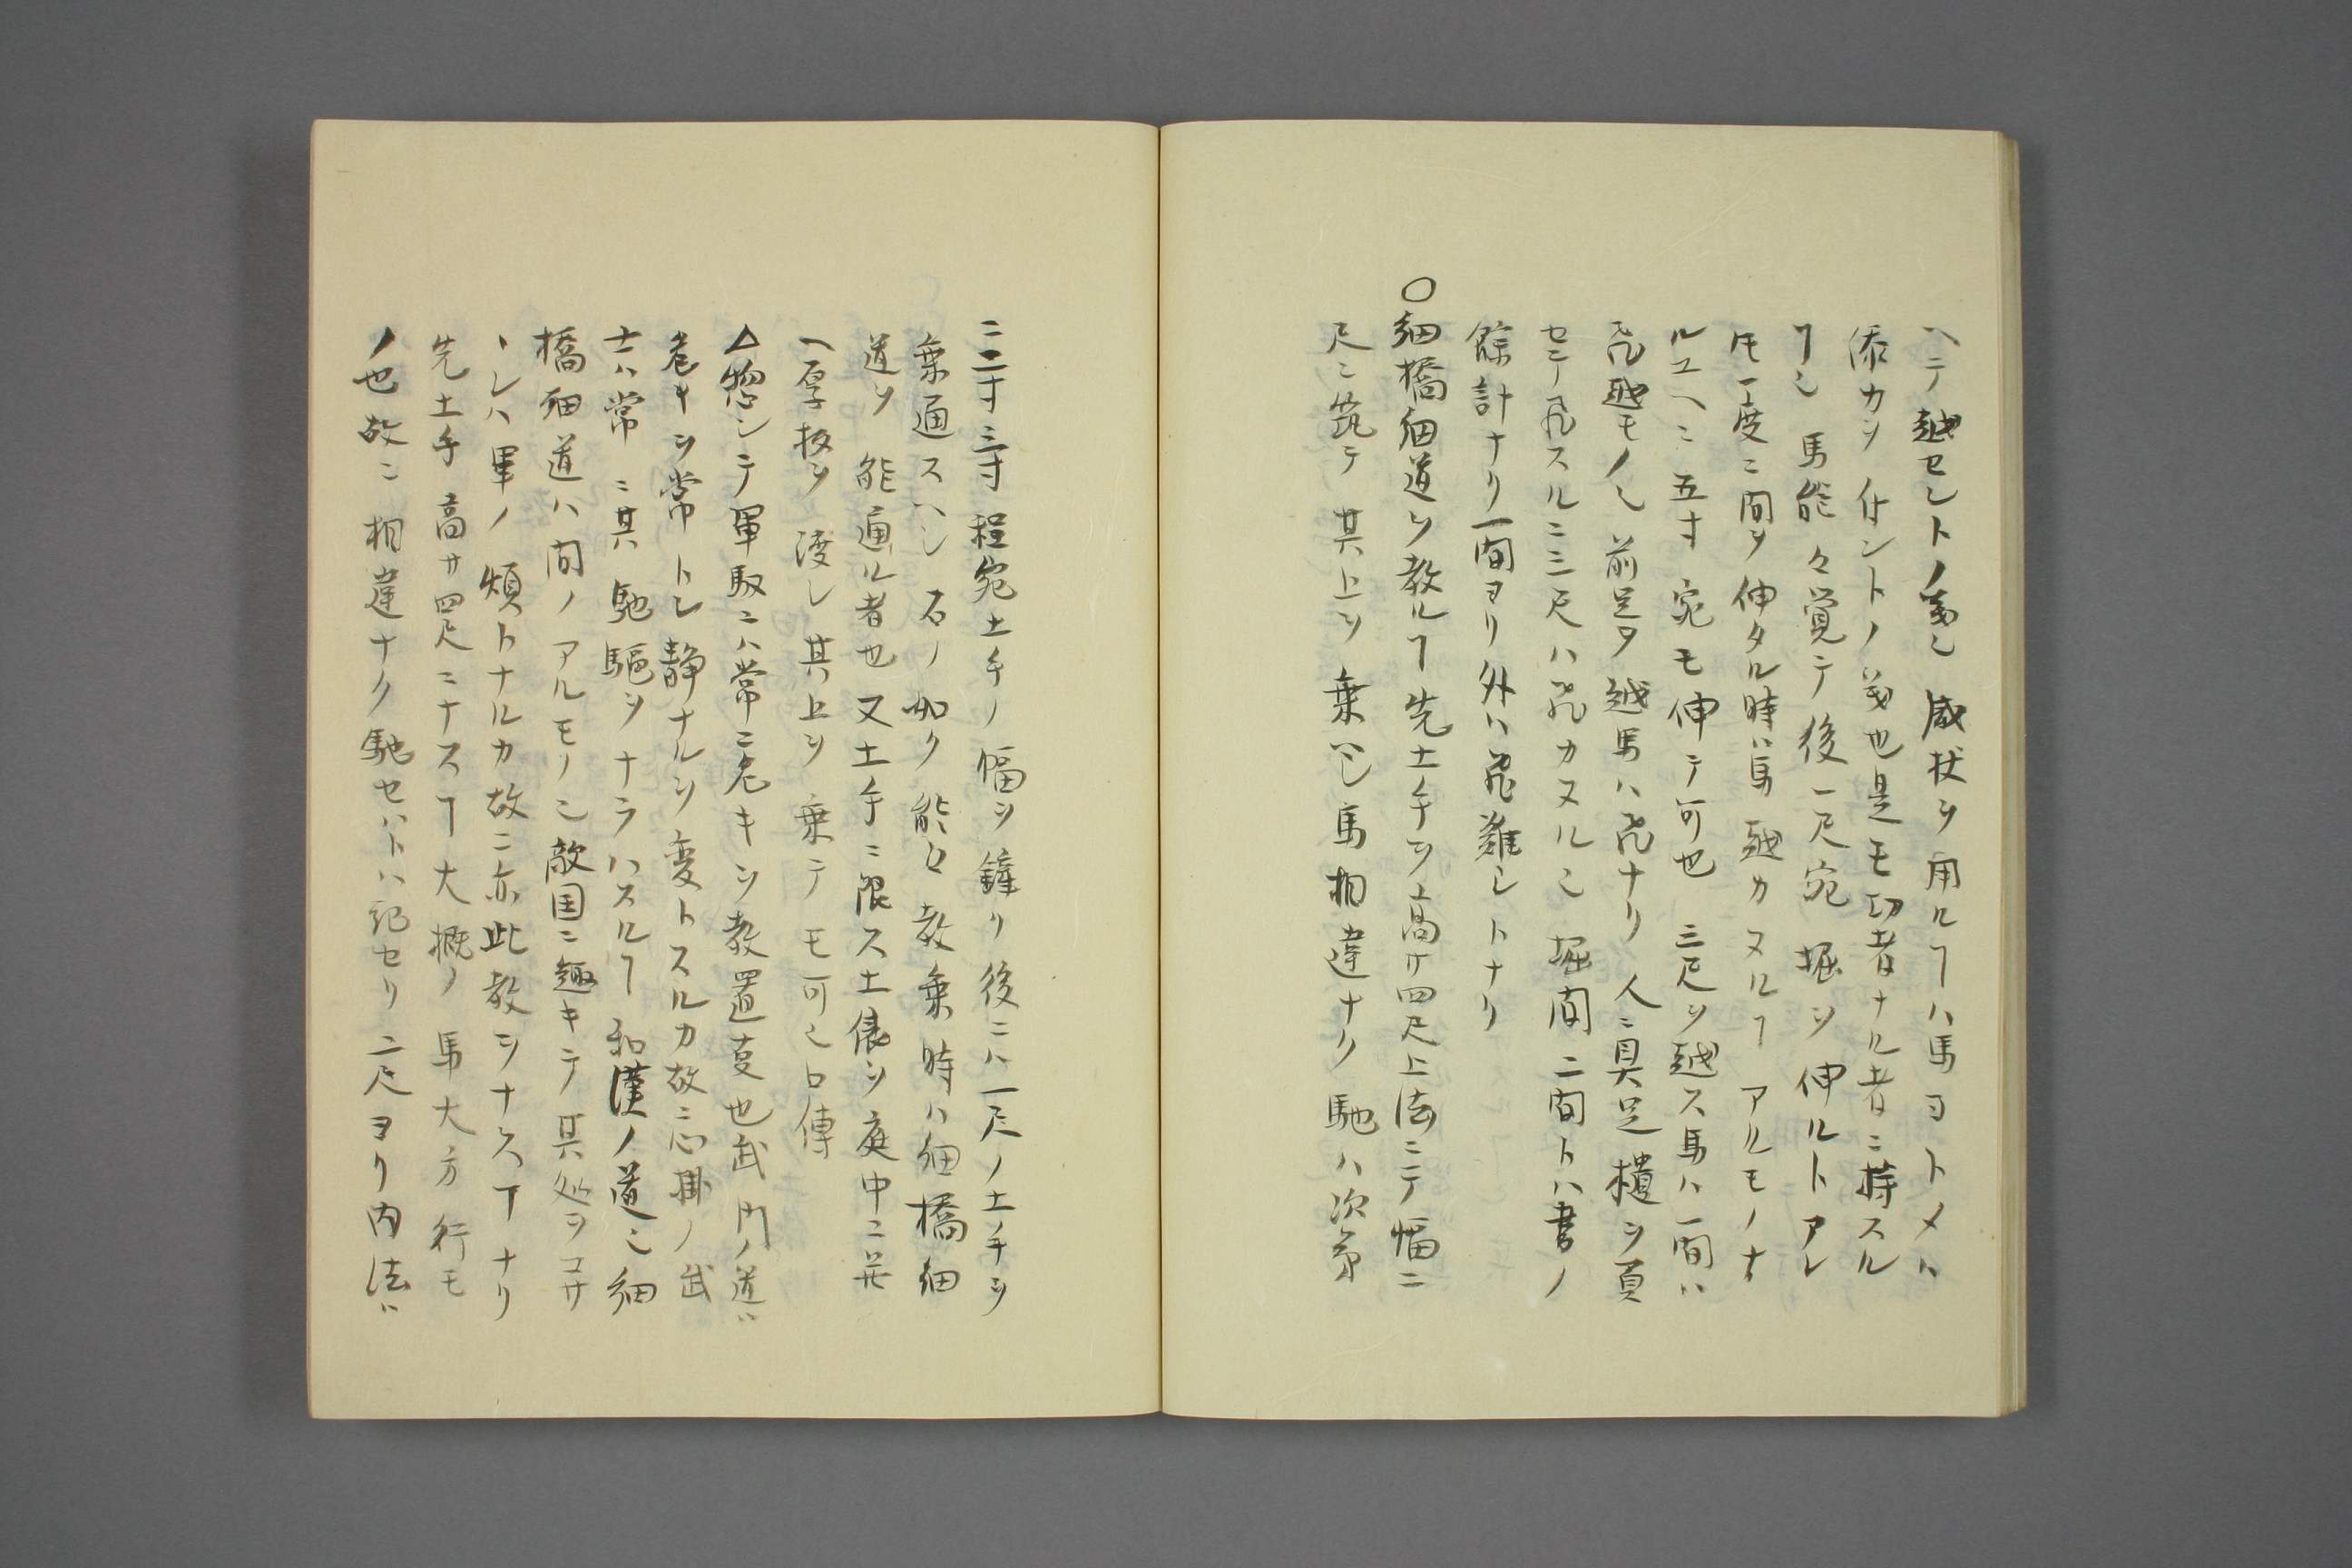 ヘテ越セントノ義也威状ヲ用ルヿハ馬ヨトメト
添カヲ付ントノ義也是モ功者ナル者ニ持スル
ヿ也馬能々覚テ後一尺宛堀ヲ伸ルトアレ
𪜈一度ニ間ヲ伸タル時ハ馬越カヌルヿアルモノナ
ルユヘニ五寸宛モ伸テ可也三尺ヲ越ス馬ハ一間ハ
飛越モノ也前足ヲ越馬ハ飛ナリ人ニ具足櫃ヲ負
セテ飛スルニ三尺ハ飛カヌル也堀間二間トハ書ノ
餘計ナリ一間ヨリ外ハ飛難シトナリ
〇細橋細道ヲ教ルヿ先土手ヲ高サ四尺上法ニテ幅ニ
尺ニ筑テ其上ヲ乗ヘシ馬相違ナク馳ハ次第
ニ二寸三寸程宛土手ノ幅ヲ鏟リ後ニハ一尺ノ土手ヲ
乗通スヘシ右ノ如ク能々教乗時ハ細橋細
道ヲ能通ル者也又土手ニ限ス土俵ヲ庭中ニ並
ヘ厚板ヲ渡シ其上ヲ乗テモ可也口傳
△惣シテ軍馭ニハ常ニ危キヲ教置事也武門ノ道ハ
危キヲ常トシ静ナルヲ変トスルカ故ニ心掛ノ武
士ハ常ニ其馳駆ヲナラハスルヿ和漢ノ道也細
橋細道ハ間ノアルモノ也敵国ニ趣キテ其処ヲコサ
ヽレハ軍ノ煩トナルカ故ニ亦此教ヲナスヿナリ
先土手高サ四尺ニナスヿ大概ノ馬大方行モ
ノ也故ニ相違ナク馳セハトハ記セリ二尺ヨリ内法ハ